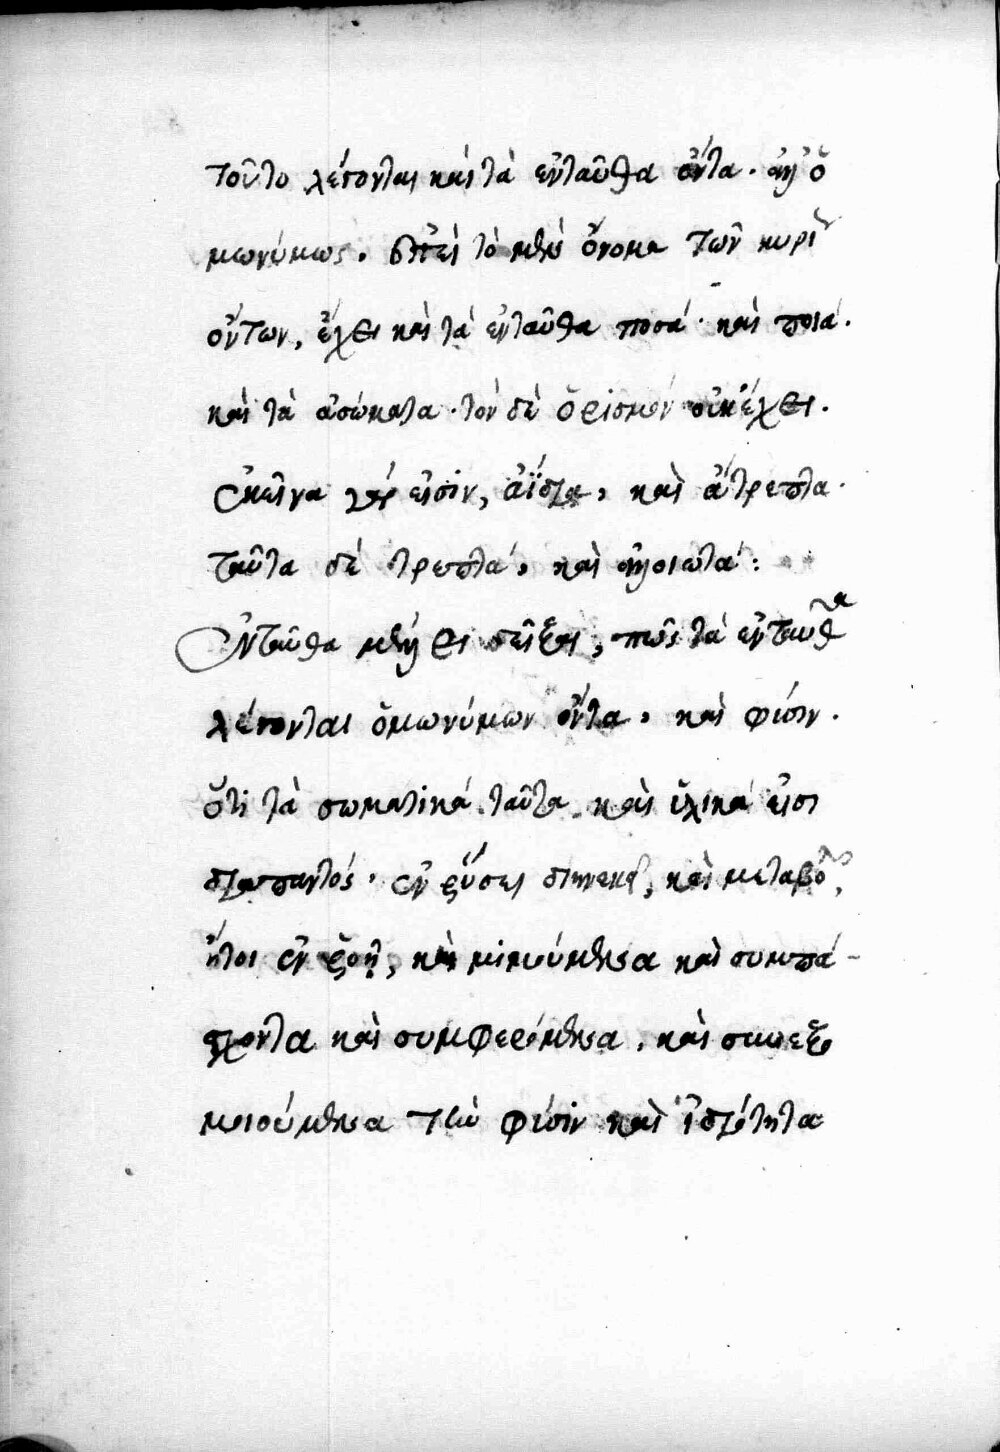 τοῦτο λέγονται καὶ τὰ ἐνταῦθα ὄντα. ἀλλ' ὁ
μωνύμως. ἐπεὶ τὸ μὲν ὄνομα τῶν κυρί
ὄντων, ἔχει καὶ τὰ ἐνταῦθα ποσά· καὶ ποιά.
καὶ τὰ ἀσώματα· τὸν δὲ ὁρισμὸν οὐκ ἔχει.
Ἐκεῖνα γάρ εἰσιν, ἀΐδια, καὶ ἄτρεπτα·
ταῦτα δὲ τρεπτά, καὶ ἀλλοιωτά:
Ἐνταῦθα μέλλει δεῖξαι, πῶς τὰ ἐνταῦθα
λέγονται ὁμωνύμων ὄντα, καὶ φύσιν.
ὅτι τὰ σωματικὰ ταῦτα καὶ ὑλικά εἰσι
διαπαντός. ἐν ῥύσει διηνεκεῖ, καὶ μεταβολῆς,
ἤτοι ἐν ῥοῇ, καὶ μιμούμενα καὶ συμπά-
σχοντα καὶ συμφερόμενα, καὶ συνεξο
μοιούμενα τὴν φύσιν καὶ ἰδιότητα